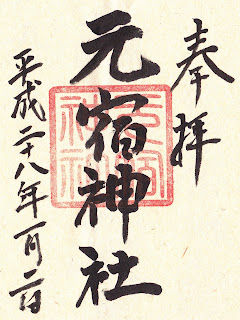 奉拝
元宿神社
平成二十八年一月二日